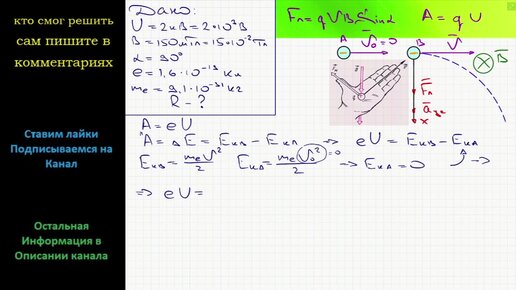 кто смог решить
сам пишите в
комментариях
Ставим лайки
Подписываемся на
Канал
Остальная
Информация в
Описании канала
Дано:
U = 2кВ = 2·10³В
B = 150мкТл = 15·10⁻⁵Тл
α = 90°
e = 1,6·10⁻¹⁹Кл
mₑ = 9,1·10⁻³¹кг
R - ?
Fл = qVB sinα A = qU
A V₀ = 0 B V B
Fл
aцс
x
A = eU
A = ΔE = Eкв - Eкл ⇒ eU = Eкв - Eкд
Eкв = mₑV²/2 Eкд = mₑV₀²/2 =0 ⇒ Eкд = 0 →
⇒ eU =